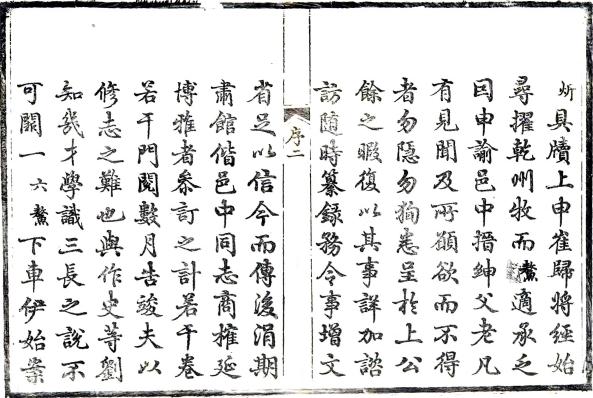 炘具牘上申崔歸將經始
尋擢乾州牧而鰲適承乏
囙申諭邑中搢紳父老凡
有見聞及所願欲而不得
者勿隱勿狥悉呈於上公
餘之暇復以其事詳加諮
訪随時纂録務令事增文
序二
省足以信今而傳後涓期
肅館偕邑中同志商搉延
博雅者叅訂之計若干卷
若干門閱數月告竣夫以
修志之難也與作史等劉
知幾才學識三長之說不
可闕一六鰲下車伊始案